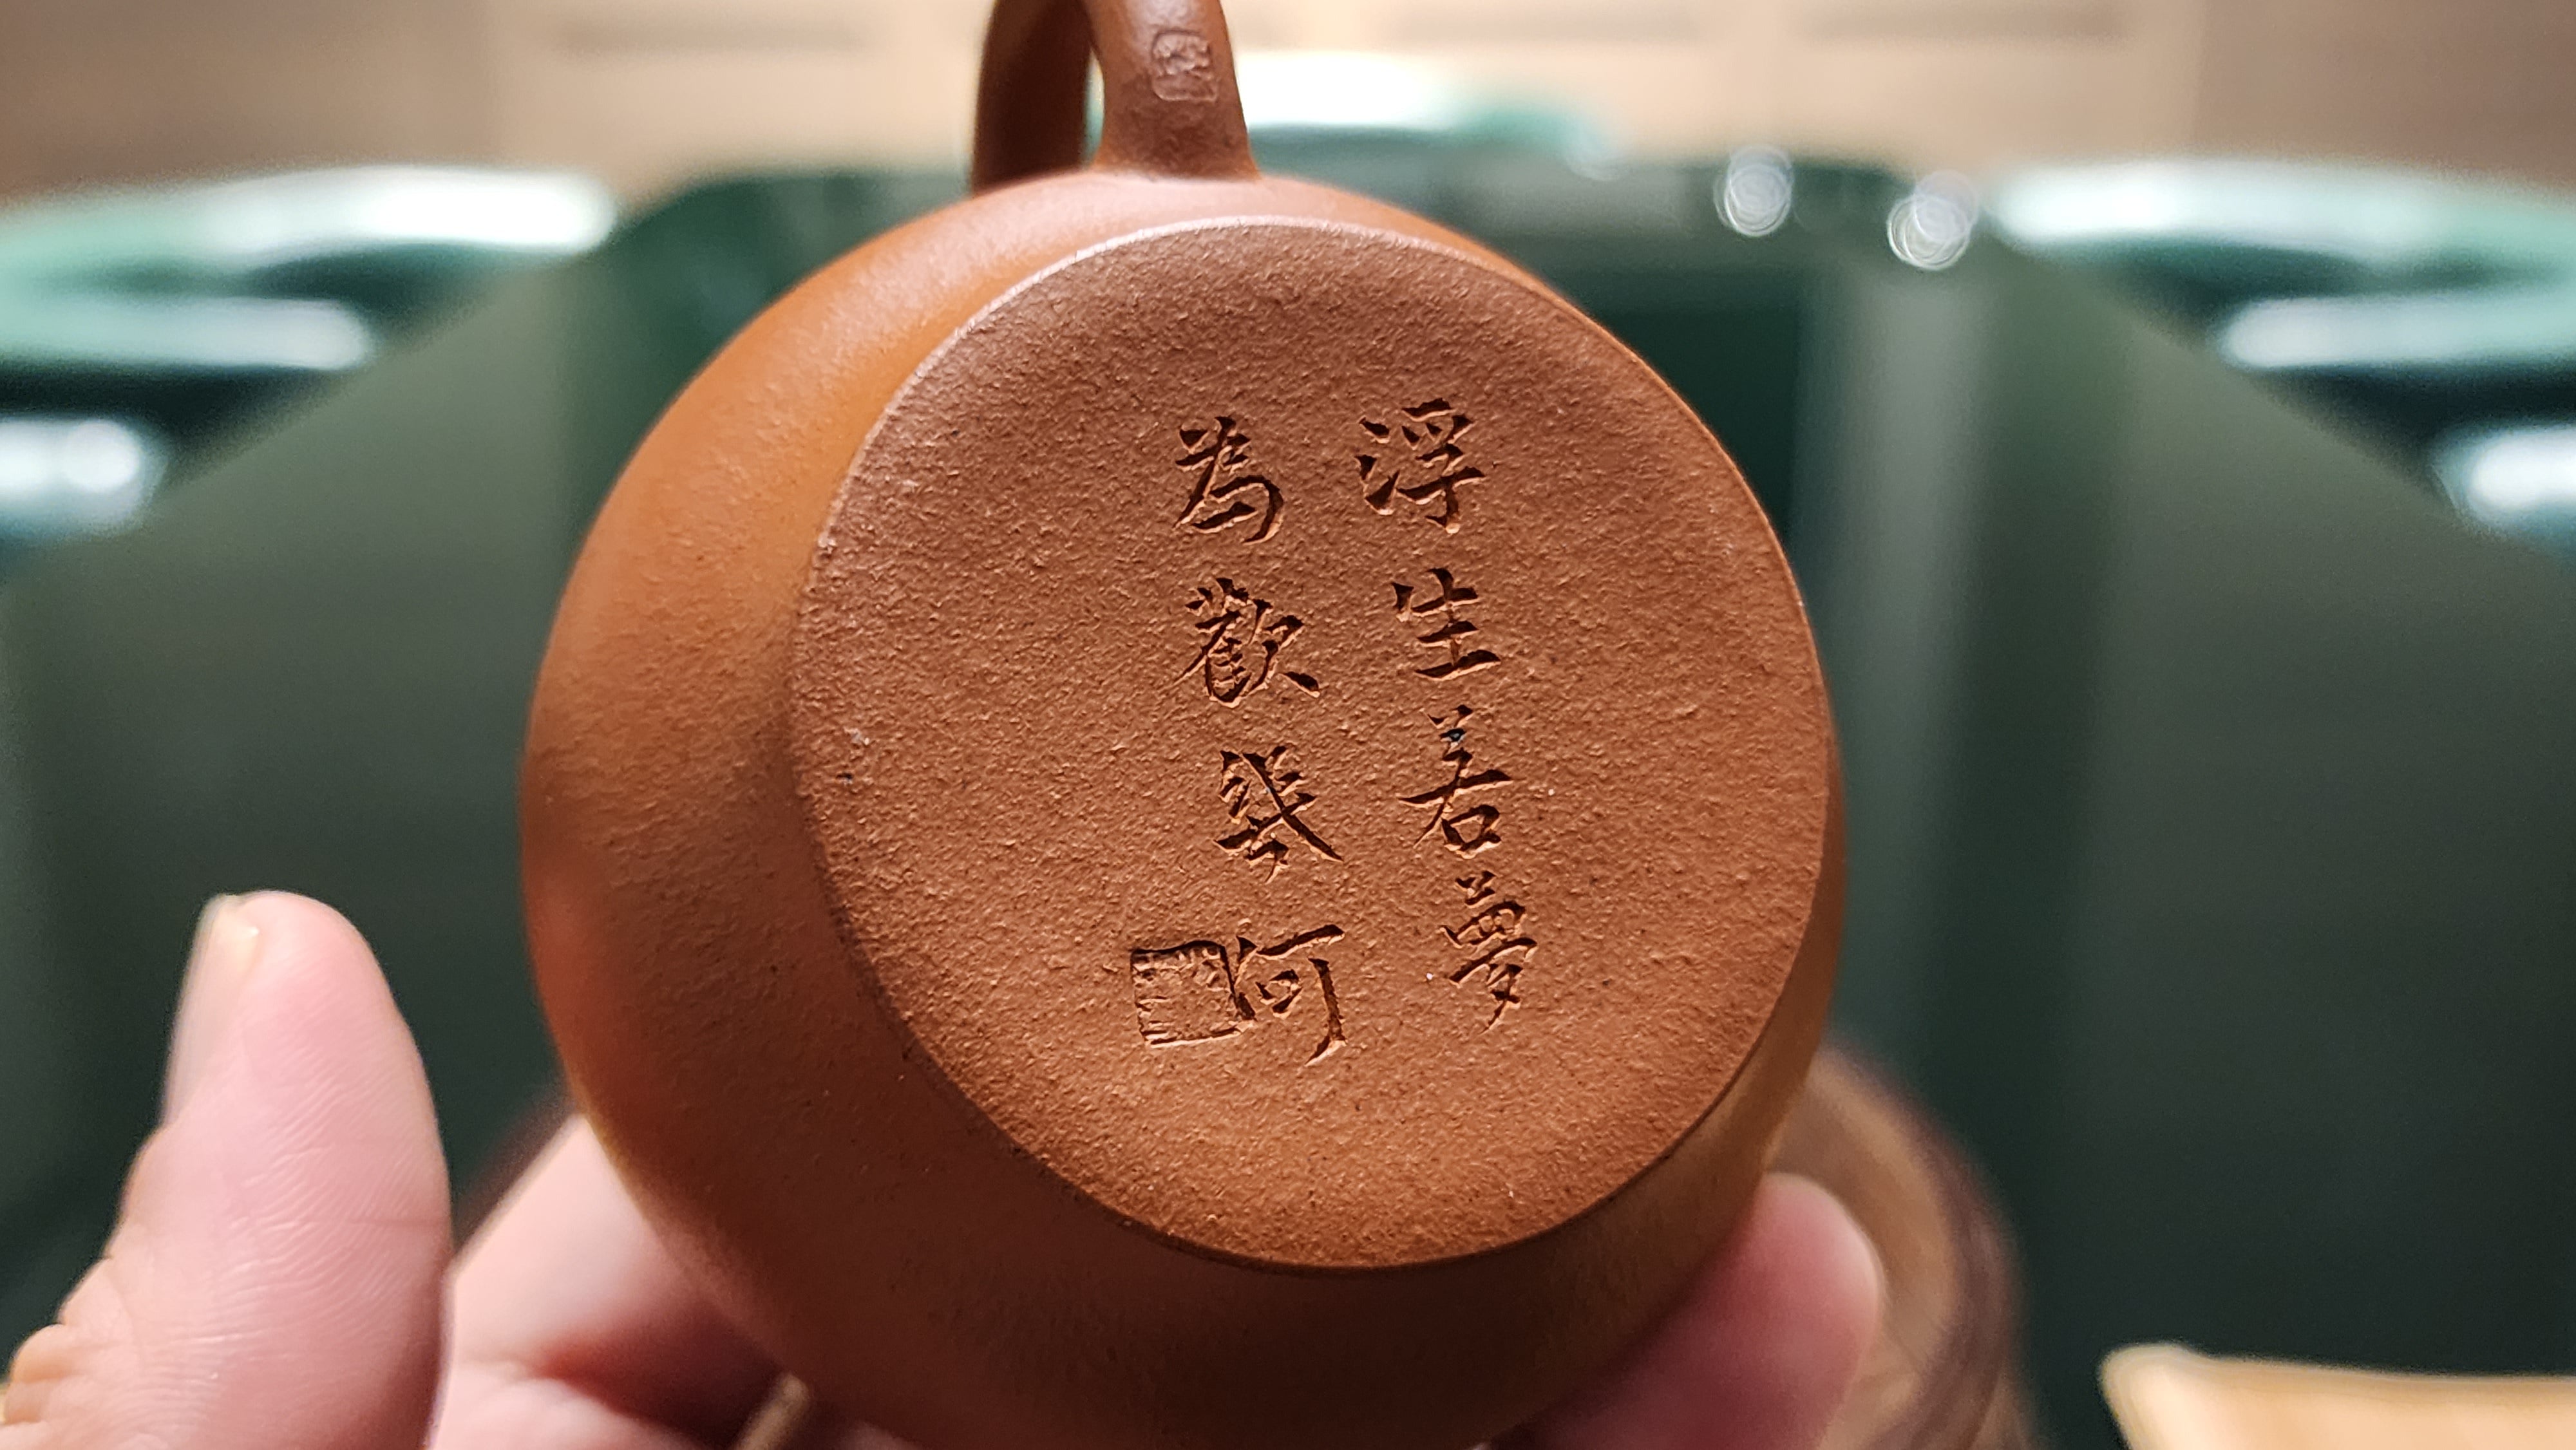 浮生若夢
為歡幾何